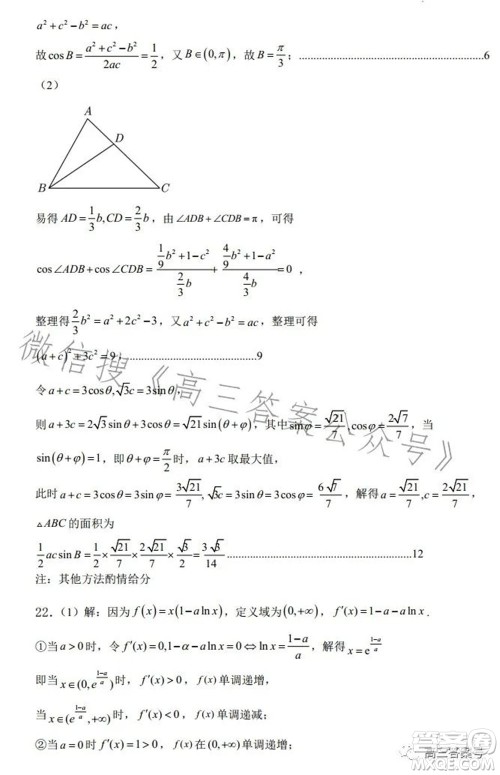 a²+c²−b²=ac，
故cosB=(a²+c²−b²)/(2ac)=1/2，又B∈(0,π)，故B=π/3；............6
（2）
A
D
B
C
易得AD=1/3b,CD=2/3b，由∠ADB+∠CDB=π，可得
cos∠ADB+cos∠CDB=(1/9b²+1−c²)/(2/3b)+(4/9b²+1−a²)/(4/3b)=0，
整理得2/3b²=a²+2c²−3，又a²+c²−b²=ac，整理可得
(a+c)²+3c²=9；............9
令a+c=3cosθ,√3c=3sinθ，
则a+3c=2√3sinθ+3cosθ=√21sin(θ+φ)，其中sinφ=√21/7,cosφ=2√7/7，当
sin(θ+φ)=1，即θ+φ=π/2时，a+3c取最大值，
此时a+c=3cosθ=3sinφ=3√21/7,√3c=3sinθ=3cosφ=6√7/7，解得a=√21/7,c=2√21/7，
△ABC的面积为
1/2acsinB=1/2×√21/7×2√21/7×√3/2=3√3/14............12
注：其他方法酌情给分
22．（1）解：因为f(x)=x(1−alnx)，定义域为(0,+∞)，f′(x)=1−a−alnx．
①当a>0时，令f′(x)=0,1−α−alnx=0⇔lnx=(1−a)/a，解得x=e^((1−a)/a)
即当x∈(0,e^((1−a)/a))时，f′(x)>0，f(x)单调递增，
当x∈(e^((1−a)/a),+∞)时，f′(x)<0，f(x)单调递减；
②当a=0时f′(x)=1>0，f(x)在(0,+∞)单调递增；
微信搜《高三答案公众号》
高三答案号